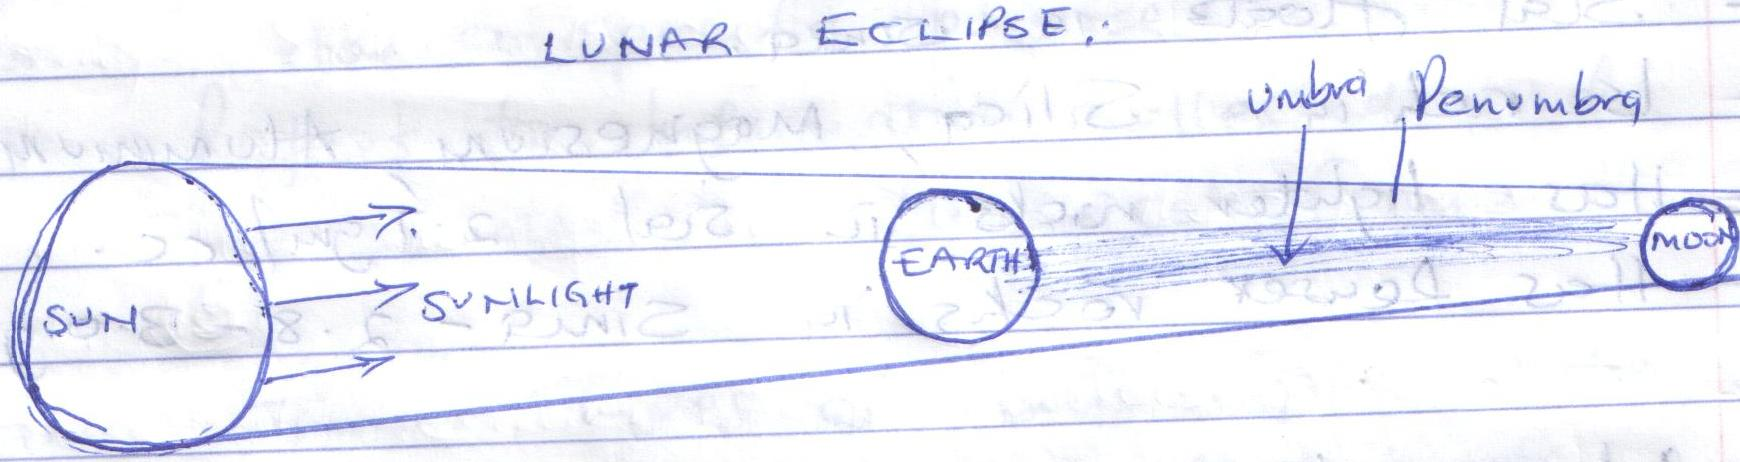 LUNAR ECLIPSE.
Umbra Penumbra
SUN
SUNLIGHT
EARTH
MOON